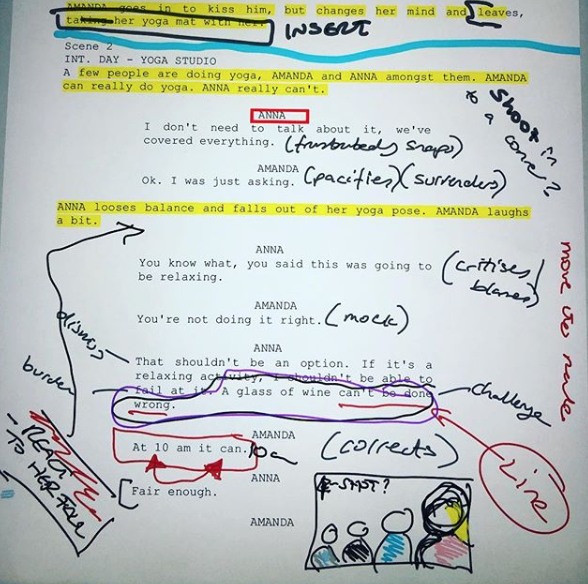 AMANDA goes in to kiss him, but changes her mind and leaves,
taking her yoga mat with her.
INSERT
Scene 2
INT. DAY - YOGA STUDIO
A few people are doing yoga, AMANDA and ANNA amongst them. AMANDA
can really do yoga. ANNA really can't.
Shoot in
to a
ANNA
I don't need to talk about it, we've
covered everything. (frustratedly snaps)
AMANDA
Ok. I was just asking. (pacifies) (surrenders)
ANNA looses balance and falls out of her yoga pose. AMANDA laughs
a bit.
ANNA
You know what, you said this was going to
be relaxing.
(critises/
blames)
AMANDA
You're not doing it right. (mock)
ANNA
dismiss
That shouldn't be an option. If it's a
relaxing activity, I shouldn't be able to
fail at it. A glass of wine can't be done
wrong.
burden
challenge
AMANDA
At 10 am it can.
(corrects)
ANNA
Fair enough.
AMANDA
- REACT
- TO HER FALL
-SHOT?
LINE